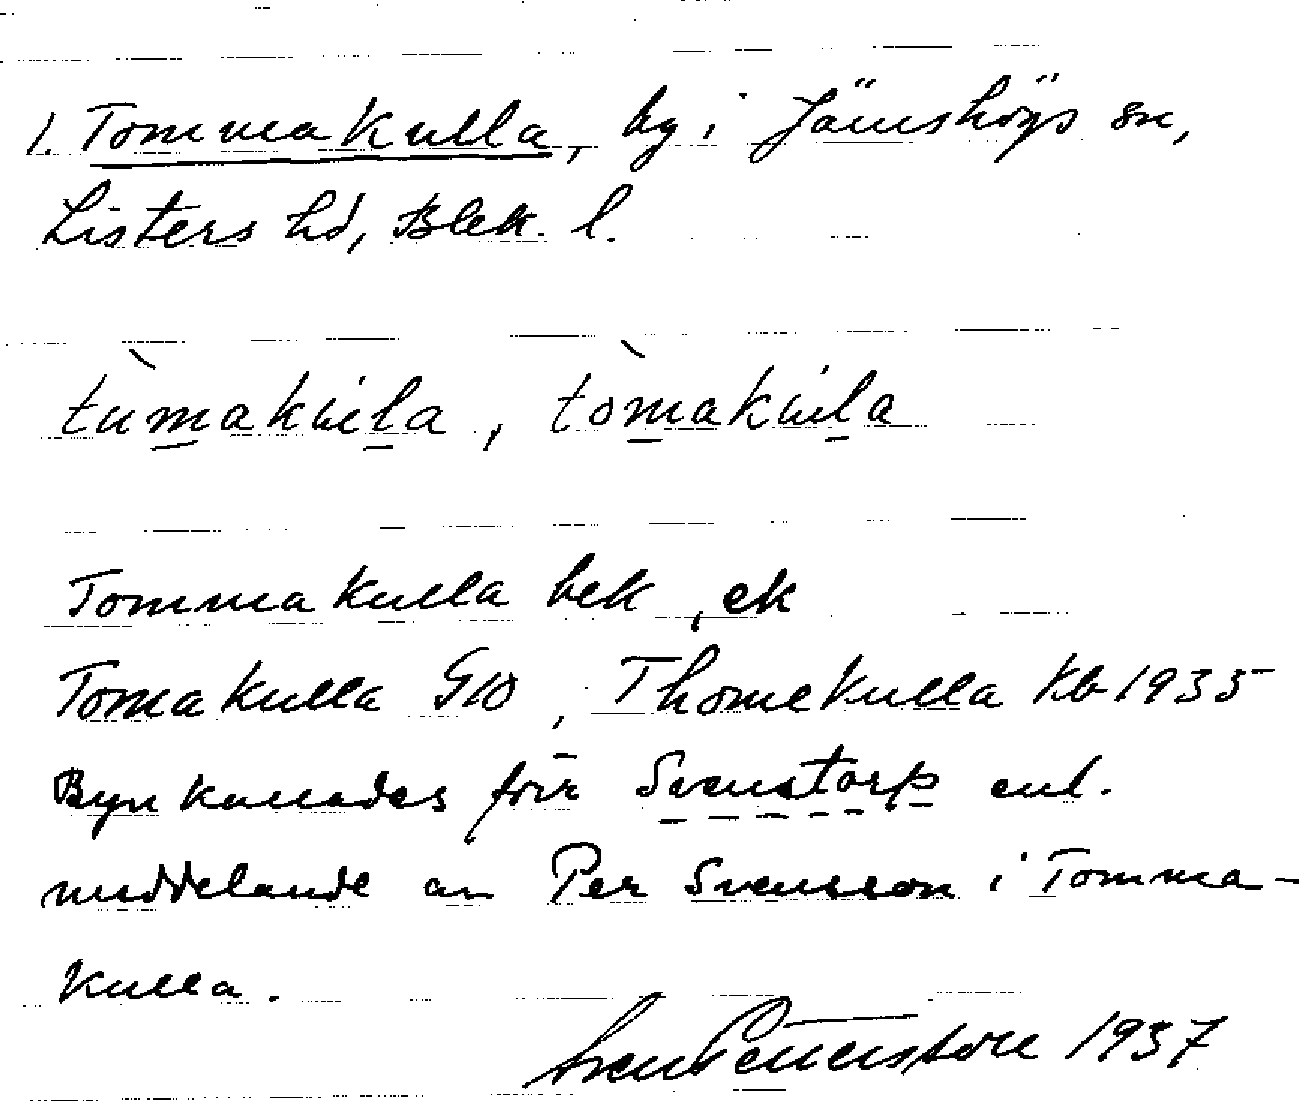 1. Tommakulla, by i Jämshögs sn,
Listers hd, Blek. l.
tùmakúla, tòmakúla
Tommakulla bek, ek
Tomakulla GK, Thomekulla Kb 1935
Byn kallades förr Svenstorp enl.
meddelande av Per Svensson i Tomma-
kulla.
Sven Pettersson 1937